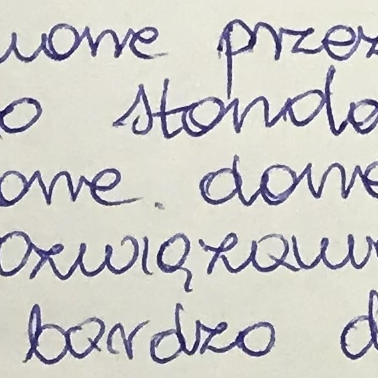 wone przez
o standa
one. dane
ozwiązaw
bardzo d